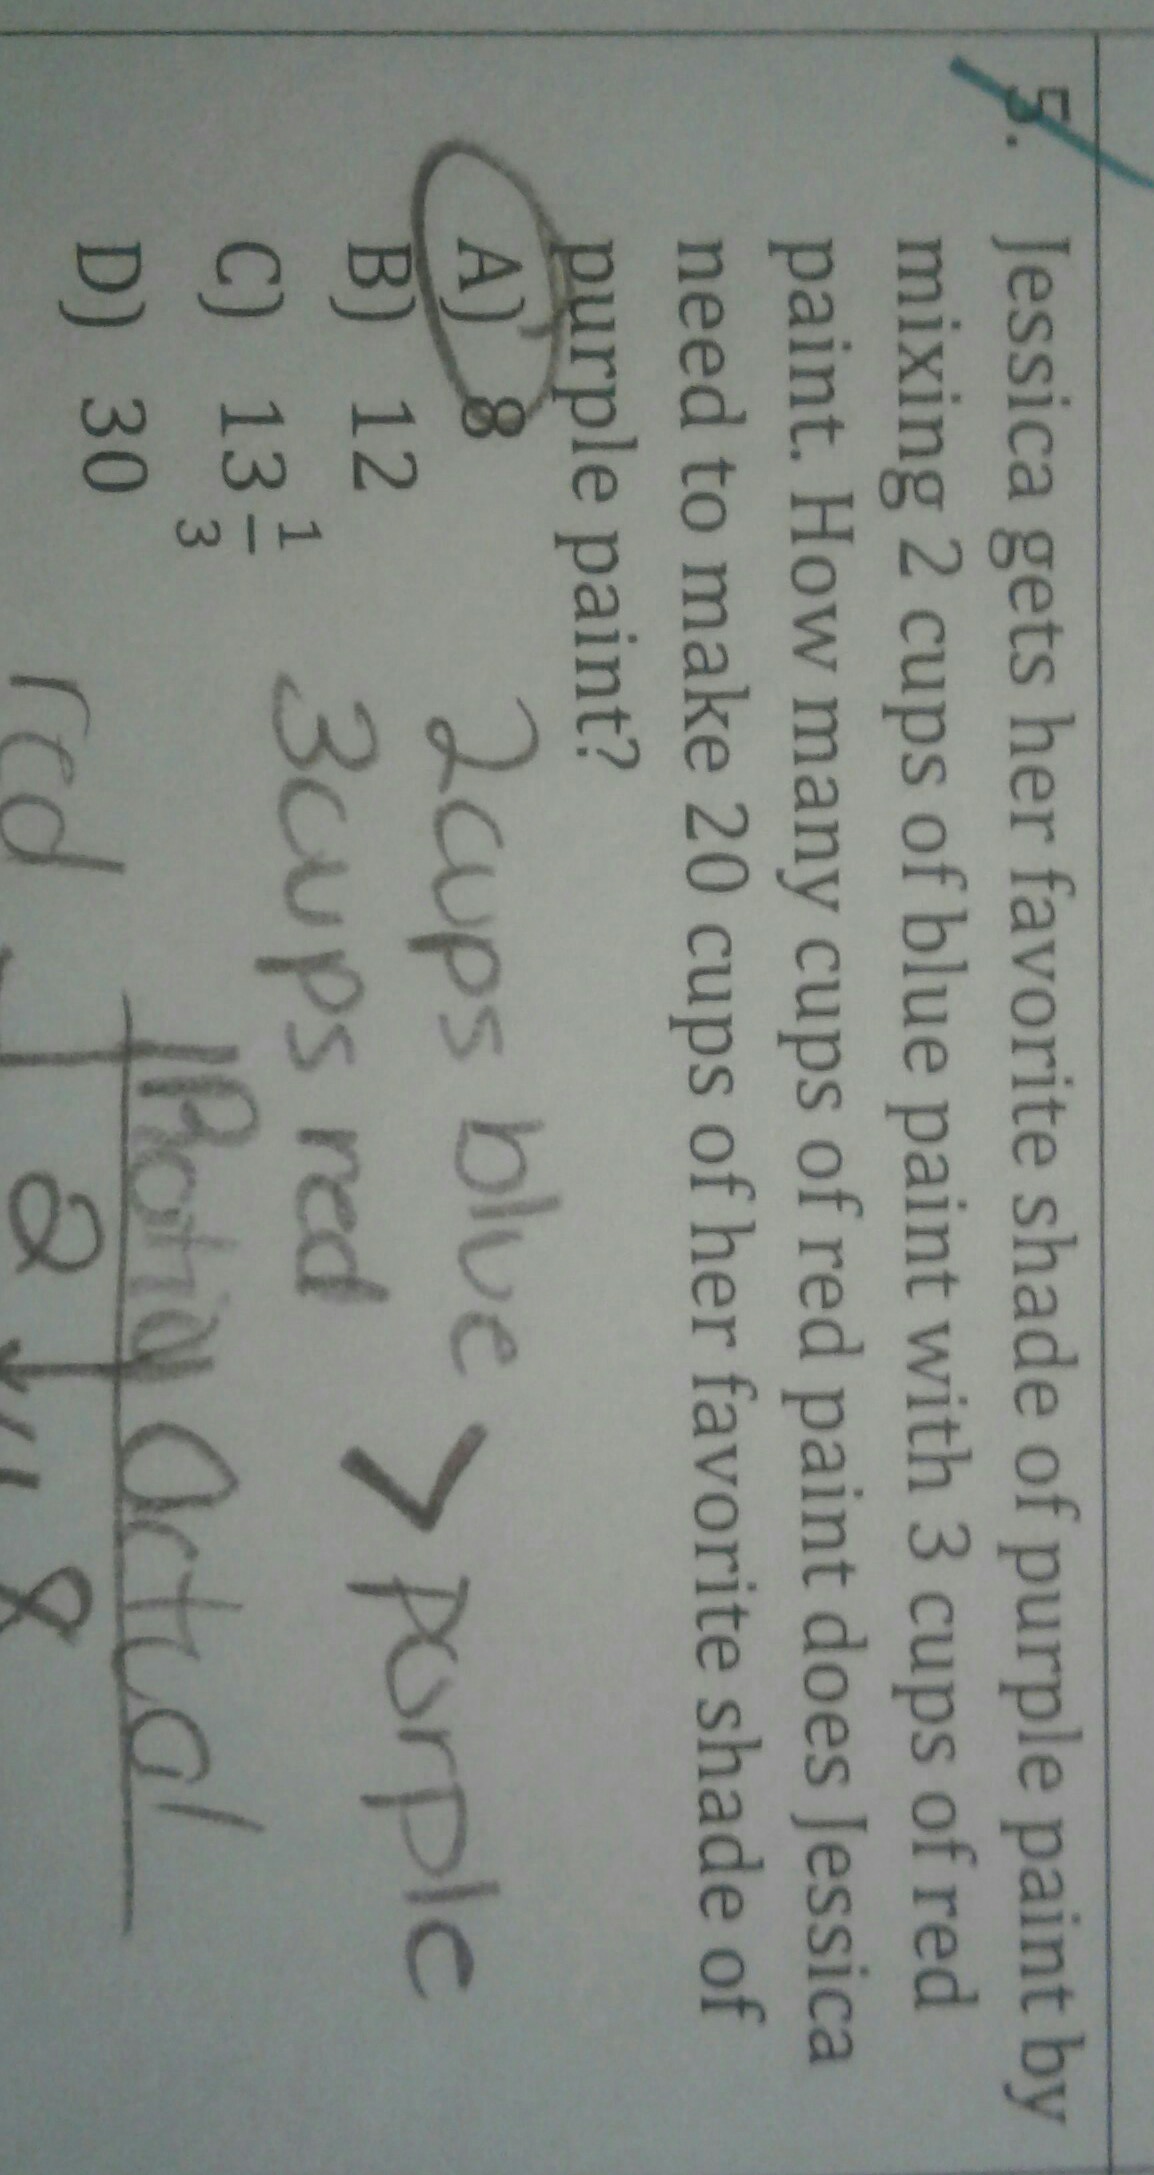 5. Jessica gets her favorite shade of purple paint by
mixing 2 cups of blue paint with 3 cups of red
paint. How many cups of red paint does Jessica
need to make 20 cups of her favorite shade of
purple paint?
A) 8
B) 12
C) 13 1/3
D) 30
2 cups blue > purple
3 cups red
Ratio actual
red 2 8